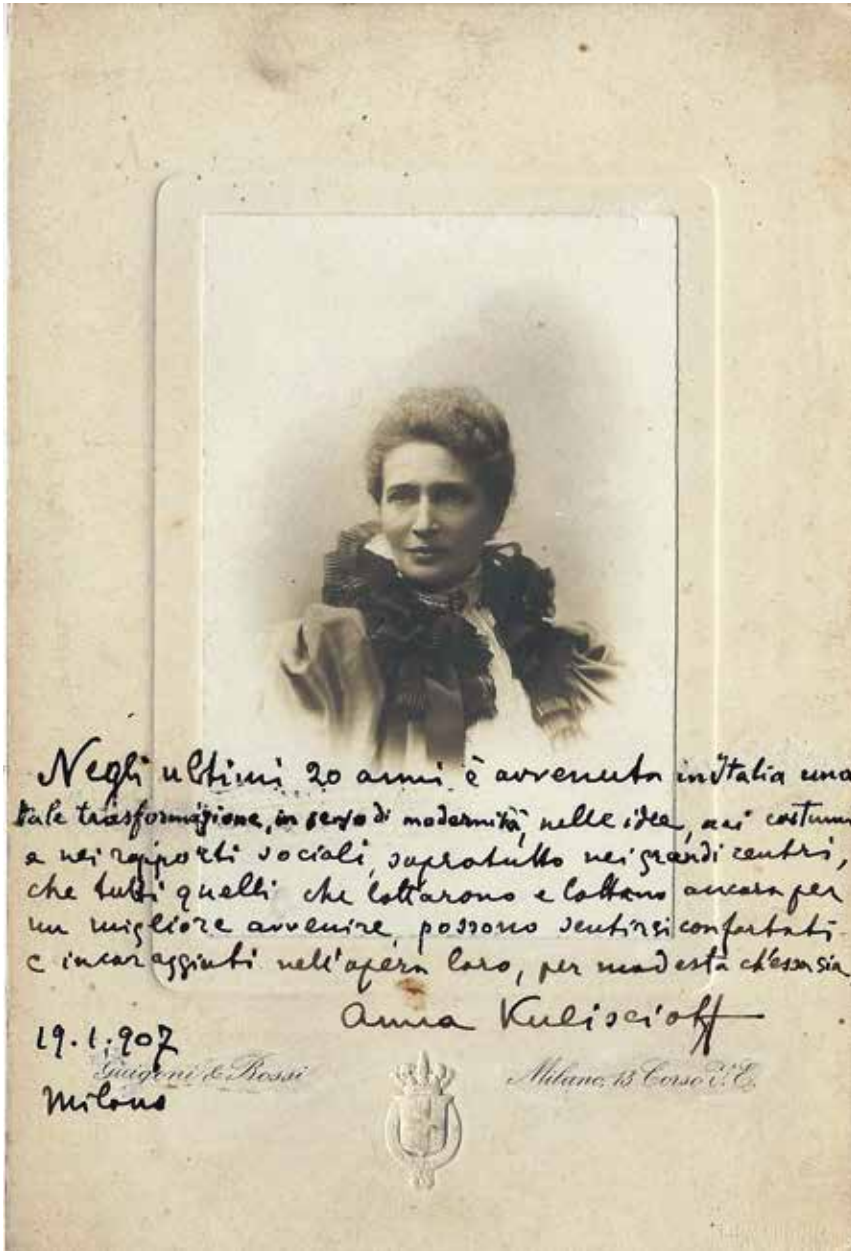 Negli ultimi 20 anni è avvenuta in Italia una
tale trasformazione, in senso di modernità, nelle idee, nei costumi
e nei rapporti sociali, sopratutto nei grandi centri,
che tutti quelli che lottarono e lottano ancora per
un migliore avvenire possono sentirsi confortati
e incoraggiati nell'opera loro, per modesta ch'essa sia
Anna Kuliscioff
19.1.907
Guigoni & Bossi
Milano, 13 Corso V.E.
Milano